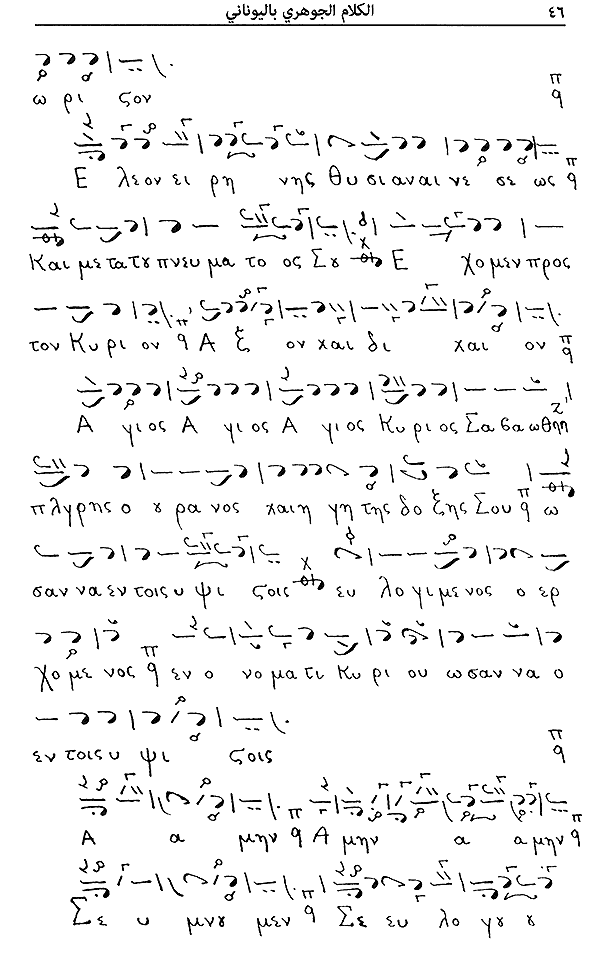 ٤٦ الكلام الجوهري باليوناني
ω ρι ςον
Ε λεον ει ρη νης θυ σι αν αι νε σε ως
Και με τα τȣ πνευ μα το ος Σȣ Ε χο μεν προς
τον Κυ ρι ον Α ξ ον και δι και ον
Α γιος Α γιος Α γιος Κυ ρι ος Σα βα ωθ η η
πλγρης ο ȣ ρα νος και η γη της δο ξης Σου ω
σαν να εν τοις υ ψι ςοις ευ λο γι με νος ο ερ
χο με νος εν ο νο μα τι Κυ ρι ου ω σαν να ο
εν τοις υ ψι ςοις
Α α μην Α μην α α μην
Σε υ μνȣ μεν Σε ευ λο γȣ ȣ